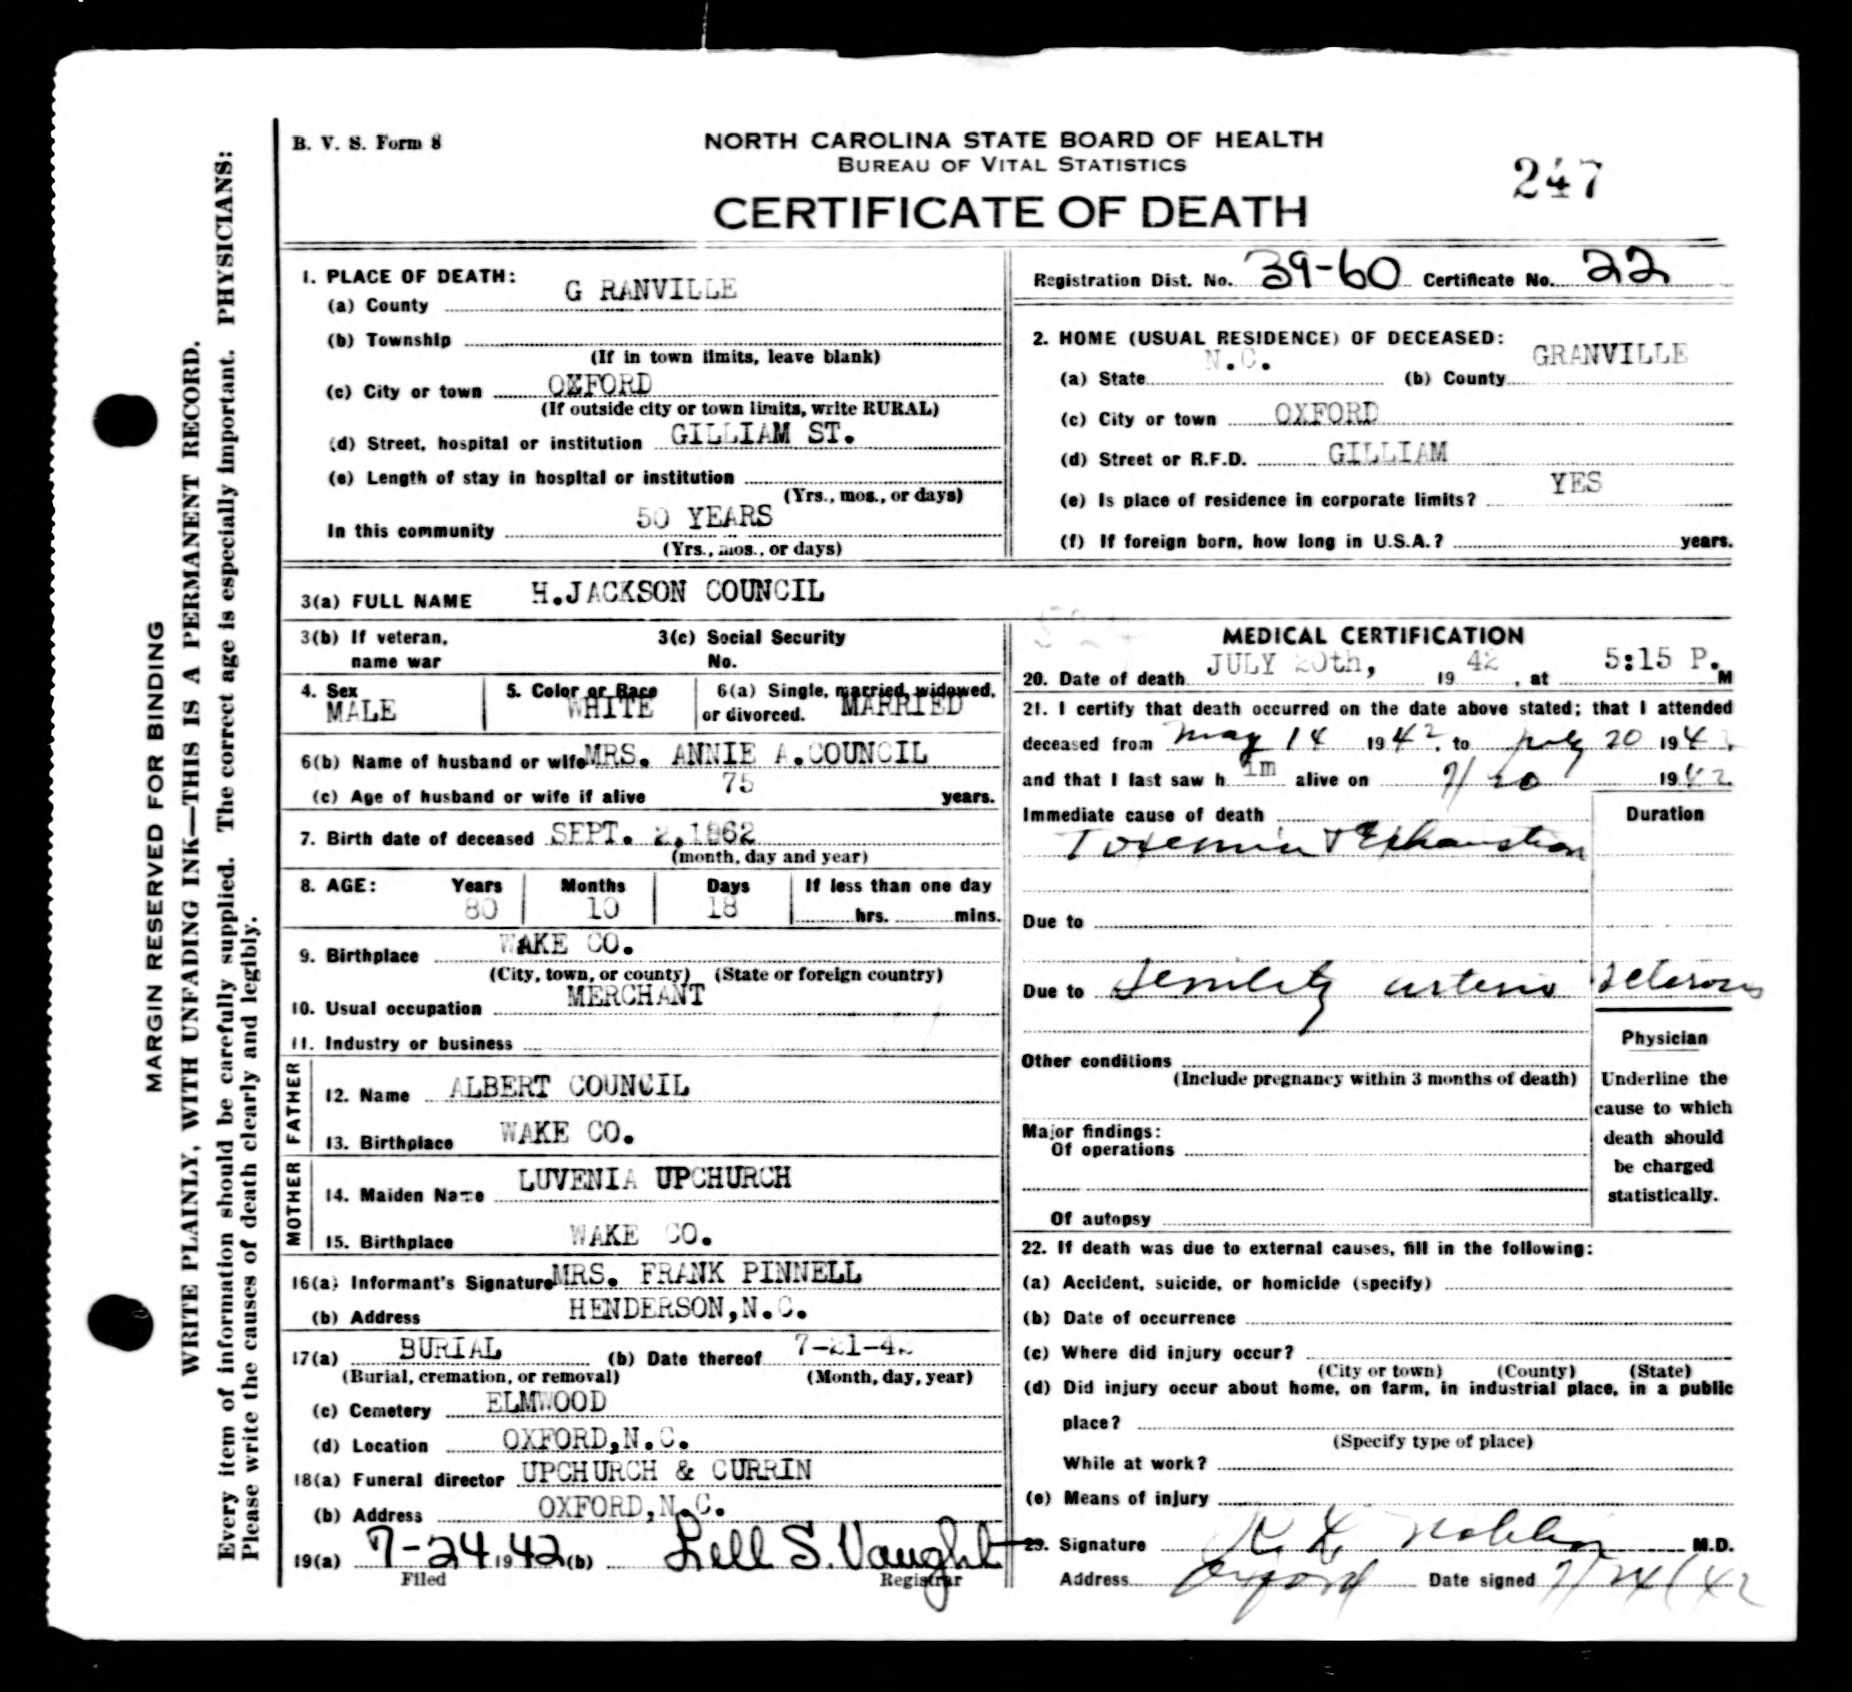 B. V. S. Form 8
NORTH CAROLINA STATE BOARD OF HEALTH
BUREAU OF VITAL STATISTICS
CERTIFICATE OF DEATH
247
MARGIN RESERVED FOR BINDING
WRITE PLAINLY, WITH UNFADING INK—THIS IS A PERMANENT RECORD.
Every item of information should be carefully supplied. The correct age is especially important. PHYSICIANS:
Please write the causes of death clearly and legibly.
1. PLACE OF DEATH:
(a) County G RANVILLE
(b) Township
(If in town limits, leave blank)
(c) City or town OXFORD
(If outside city or town limits, write RURAL)
(d) Street, hospital or institution GILLIAM ST.
(e) Length of stay in hospital or institution
(Yrs., mos., or days)
In this community 50 YEARS
(Yrs., mos., or days)
Registration Dist. No. 39-60 Certificate No. 22
2. HOME (USUAL RESIDENCE) OF DECEASED:
(a) State N.C. (b) County GRANVILLE
(c) City or town OXFORD
(d) Street or R.F.D. GILLIAM
(e) Is place of residence in corporate limits? YES
(f) If foreign born, how long in U.S.A.? years.
3(a) FULL NAME H.JACKSON COUNCIL
3(b) If veteran, name war
3(c) Social Security No.
4. Sex MALE
5. Color or Race WHITE
6(a) Single, married, widowed, or divorced. MARRIED
6(b) Name of husband or wife MRS. ANNIE A.COUNCIL
(c) Age of husband or wife if alive 75 years.
7. Birth date of deceased SEPT. 2,1862
(month, day and year)
8. AGE: Years Months Days If less than one day
80 10 18 hrs. mins.
9. Birthplace WAKE CO.
(City, town, or county) (State or foreign country)
10. Usual occupation MERCHANT
11. Industry or business
FATHER
12. Name ALBERT COUNCIL
13. Birthplace WAKE CO.
MOTHER
14. Maiden Name LUVENIA UPCHURCH
15. Birthplace WAKE CO.
16(a) Informant's Signature MRS. FRANK PINNELL
(b) Address HENDERSON,N.C.
17(a) BURIAL (b) Date thereof 7-21-42
(Burial, cremation, or removal) (Month, day, year)
(c) Cemetery ELMWOOD
(d) Location OXFORD,N.C.
18(a) Funeral director UPCHURCH & CURRIN
(b) Address OXFORD,N.C.
19(a) 7-24 1942 (b) Lell S. Vaught
Filed Registrar
MEDICAL CERTIFICATION
20. Date of death JULY 20th, 19 42, at 5:15 P. M
21. I certify that death occurred on the date above stated; that I attended
deceased from May 14 1942, to July 20 194
and that I last saw h im alive on 7/20 1942
Immediate cause of death Duration
Toxemia & Exhaustion
Due to
Due to Senility arterio sclerosis
Other conditions
(Include pregnancy within 3 months of death)
Major findings:
Of operations
Of autopsy
Physician
Underline the
cause to which
death should
be charged
statistically.
22. If death was due to external causes, fill in the following:
(a) Accident, suicide, or homicide (specify)
(b) Date of occurrence
(c) Where did injury occur?
(City or town) (County) (State)
(d) Did injury occur about home, on farm, in industrial place, in a public
place?
(Specify type of place)
While at work?
(e) Means of injury
23. Signature M.D.
Address Oxford Date signed 7/24/42